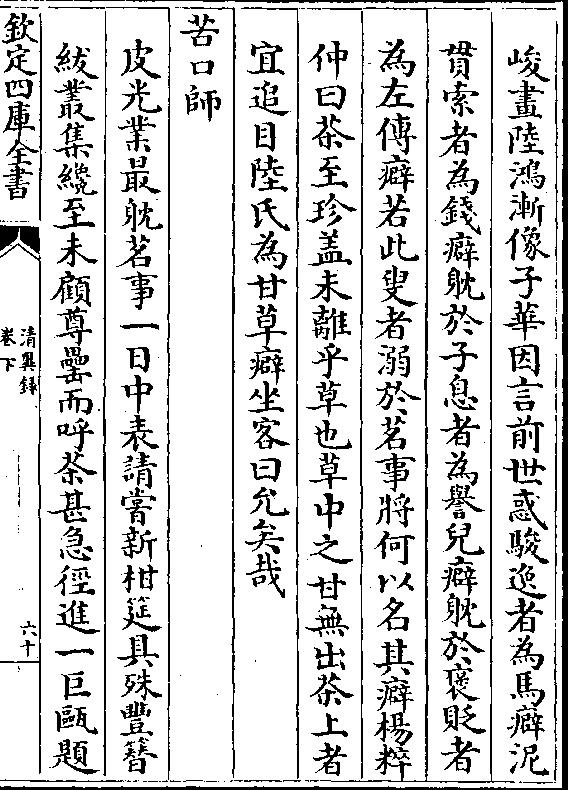 峻畫陸鴻漸像子華因言前世惑駿逸者為馬癖泥
貫索者為錢癖躭於子息者為譽兒癖躭於褒貶者
為左傳癖若此叟者溺於茗事將何以名其癖楊粹
仲曰茶至珍盖未離乎草也草中之甘無出茶上者
宜追目陸氏為甘草癖坐客曰允矣哉
苦口師
皮光業最躭茗事一日中表請嘗新柑筵具殊豐簪
紱叢集纔至未顧尊罍而呼茶甚急徑進一巨甌題
欽定四庫全書
清異録
卷下
六十